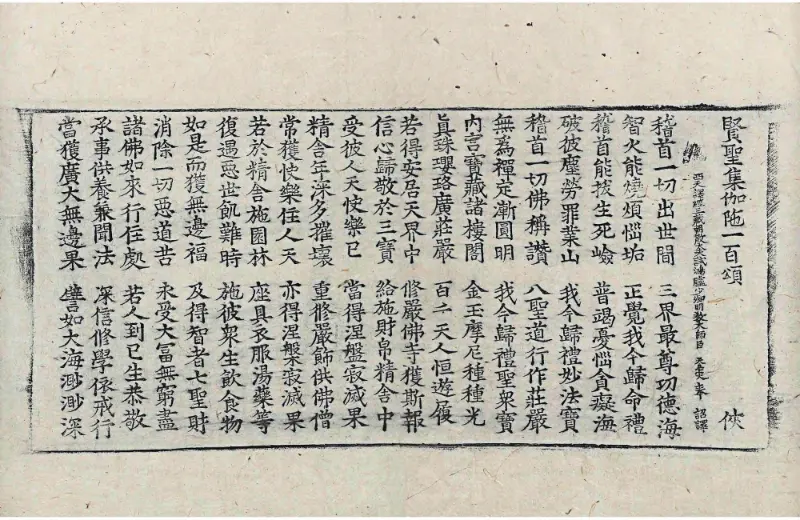 賢聖集伽陁一百頌 俠
西天譯經三藏朝散大夫試鴻臚少卿明教大師臣 天息災 奉 詔譯
稽首一切出世間 三界最尊功德海
智火能燒煩惱垢 正覺我今歸命禮
稽首能拔生死嶮 普竭憂惱貪癡海
破彼塵勞罪業山 我今歸禮妙法寶
稽首一切佛稱讃 八聖道行作莊嚴
無爲禪定漸圓明 我今歸禮聖衆寶
内宫寶藏諸樓閣 金玉摩尼種種光
眞珠瓔珞廣莊嚴 百千天人恒遊履
若得安居天界中 修嚴佛寺獲斯報
信心歸敬於三寶 給施財帛精舍中
受彼人天快樂已 當得涅盤寂滅果
精舍年深多摧壞 重修嚴飾供佛僧
常獲快樂住人天 亦得涅槃寂滅果
若於精舍施園林 座具衣服湯藥等
復遇惡世飢難時 施彼衆生飲食物
如是而獲無邊福 及得智者七聖財
消除一切惡道苦 永受大富無窮盡
諸佛如來行住處 若人到已生恭敬
承事供養兼聞法 深信修學依戒行
當獲廣大無邊果 譬如大海渺渺深